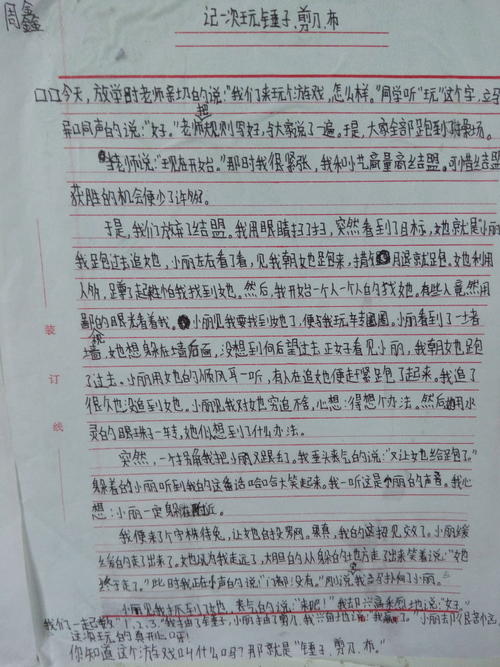 周鑫
记一次玩锤子、剪刀、布
今天，放学时老师亲切的说："我们来玩个游戏，怎么样。"同学听"玩"这个字，立
口同声的说："好。"老师把规则写好，与大家说了一遍。于是，大家全部跑到了操场。
老师说："现在开始。"那时我很紧张，我和小艺商量商结盟。可惜结
获胜的机会便少了许多。
于是，我们放弃了结盟。我用眼睛扫了扫，突然看到了目标，她就是"小丽
我跑过去追她，小丽左右看了看，见我朝她跑来，拔腿就跑。她利用
人多，躲了起来怕我找到她。然后，我开始一个人一个人的找她。有些人竟然用
鄙的眼光看着我。小丽见我要找到她了，便与我玩转圈圈。小丽看到了一堵
墙，她想躲在墙后面，没想到向后望过去正好看见小丽，我朝她跑
了过去。小丽用她的顺风耳一听，有人在追她便赶紧跑了起来。我追了
很久也没追到她。小丽见我对她穷追不舍，心想：得想个办法。然后她用水
灵的眼珠子一转，她似想到了什么办法。
突然，一个我把小丽又跟丢了。我垂头丧气的说："又让她给跑了。"
躲着的小丽听到我的这番话哈哈大笑起来。我一听这是小丽的声音。我心
想：小丽一定躲在附近。
我便来了个守株待兔，让她自投罗网。果真，我的这招见效了。小丽缓
缓的走了出来了。她以为我走远了，大胆的从躲的地方走了出来笑着说："她
终于走了。"此时我正在小声的说："门都没有。"刚说完我立马扑向了小丽。
小丽见我抓到了她，丧气的说："来吧！"我却兴高采烈地说："好。"
我们一起数
你知道这个游戏叫什么吗？那就是"锤子、剪刀、布。"
装
订
线